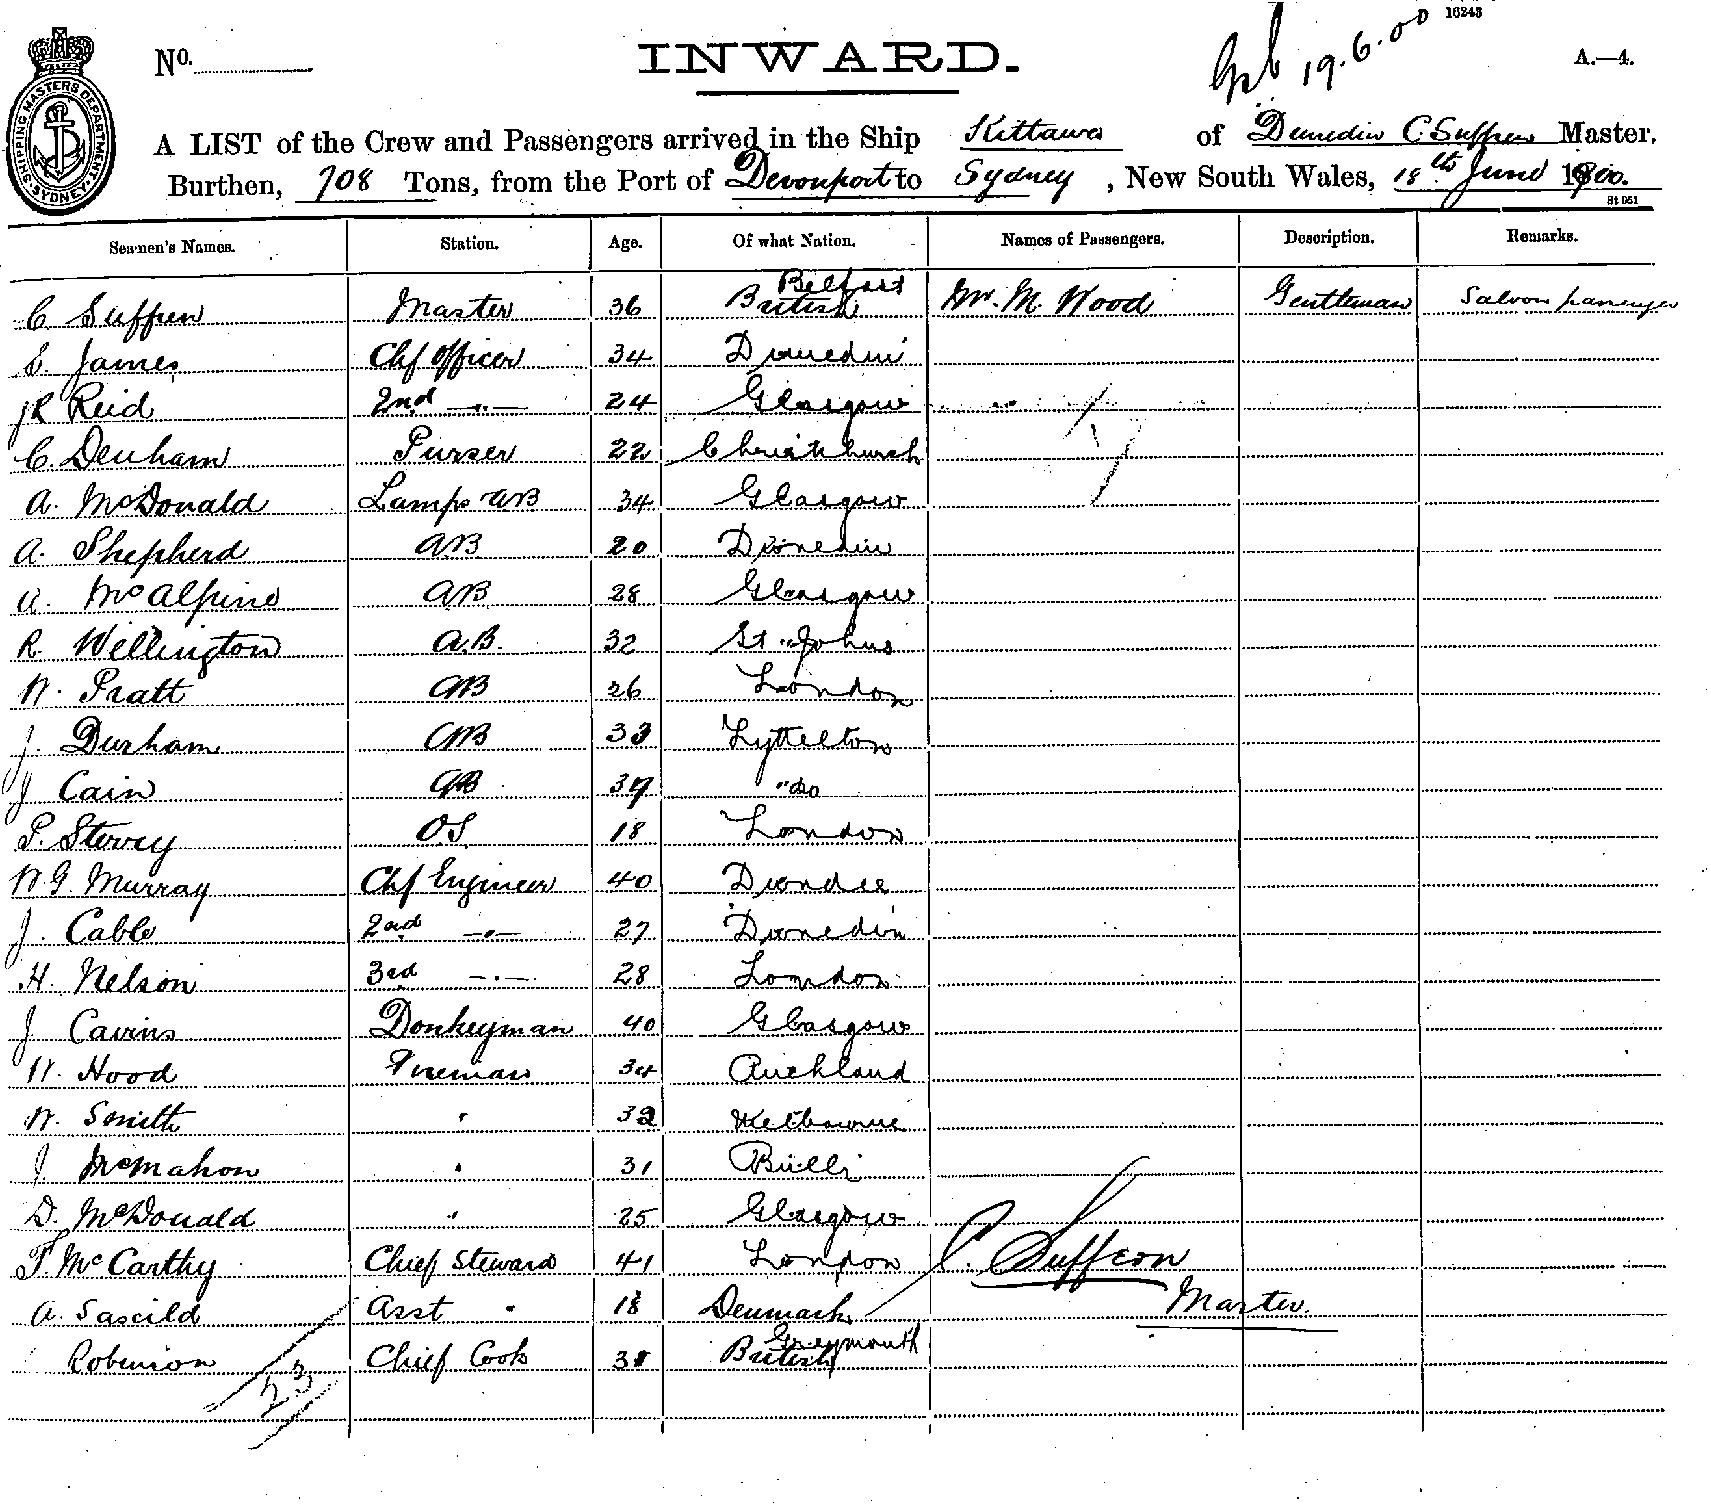 16243
No. INWARD. 19.6.00 A.—4.
SHIPPING MASTERS DEPARTMENT SYDNEY
A LIST of the Crew and Passengers arrived in the Ship Kittawa of Dunedin C. Suffern Master,
Burthen, 708 Tons, from the Port of Devonport to Sydney, New South Wales, 18th June 1900.
St 051
Seamen's Names. Station. Age. Of what Nation. Names of Passengers. Description. Remarks.
C Suffern Master 36 British Belfast Mr. M. Wood Gentleman Saloon passenger
E. James Chf Officer 34 Dunedin
JR Reid 2nd —„— 24 Glasgow
C. Denham Purser 22 Christchurch
A. McDonald Lamps AB 34 Glasgow
A. Shepherd AB 20 Dunedin
A. McAlpine AB 28 Glasgow
R. Wellington A.B. 32 St. Johns
W. Pratt AB 26 London
J. Durham AB 33 Lyttelton
J Cain AB 39 "do
P. Stovey O.S. 18 London
W.G. Murray Chf Engineer 40 Dundee
J. Cable 2nd —„— 27 Dunedin
H. Nelson 3rd —„— 28 London
J Cavins Donkeyman 40 Glasgow
W. Hood Fireman 34 Auckland
W. Smith " 32 Melbourne
J. McMahon " 31 Bulli
D. McDonald " 25 Glasgow
F. McCarthy Chief Steward 41 London
C. Suffern
A. Sascild Asst " 18 Denmark
Master.
Robinson Chief Cook 31 British Greymouth
23